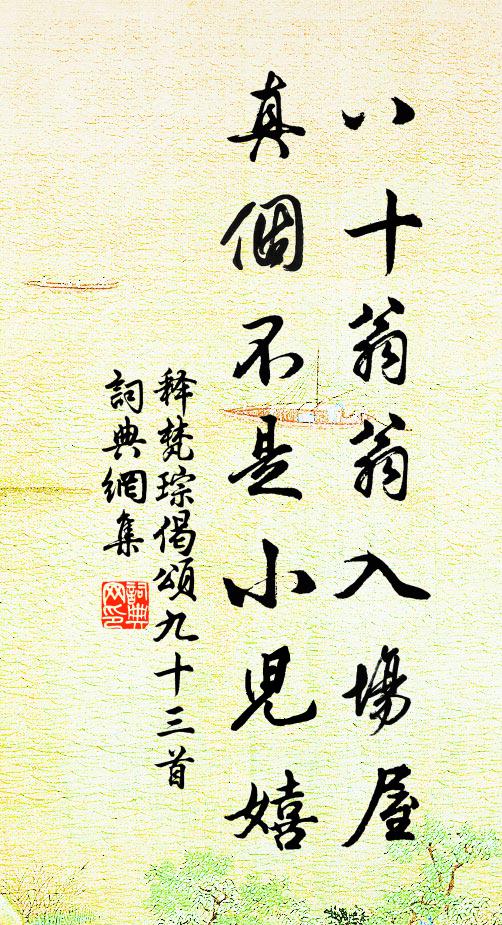 八十翁翁入場屋
真個不是小兒嬉
釋梵琮偈頌九十三首
詞典網集
詞典網印